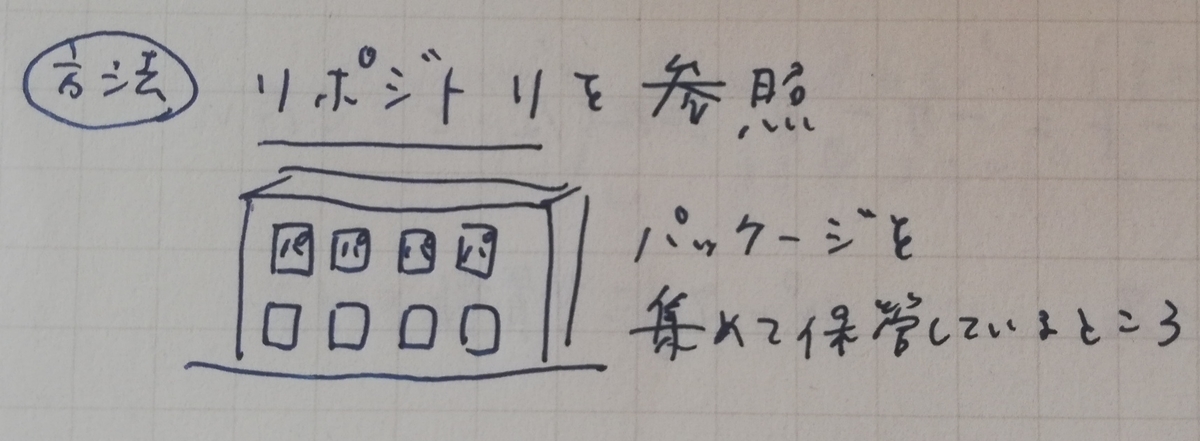 方法 リポジトリを参照
パ パ パ パ
パッケージを
集めて保管しているところ